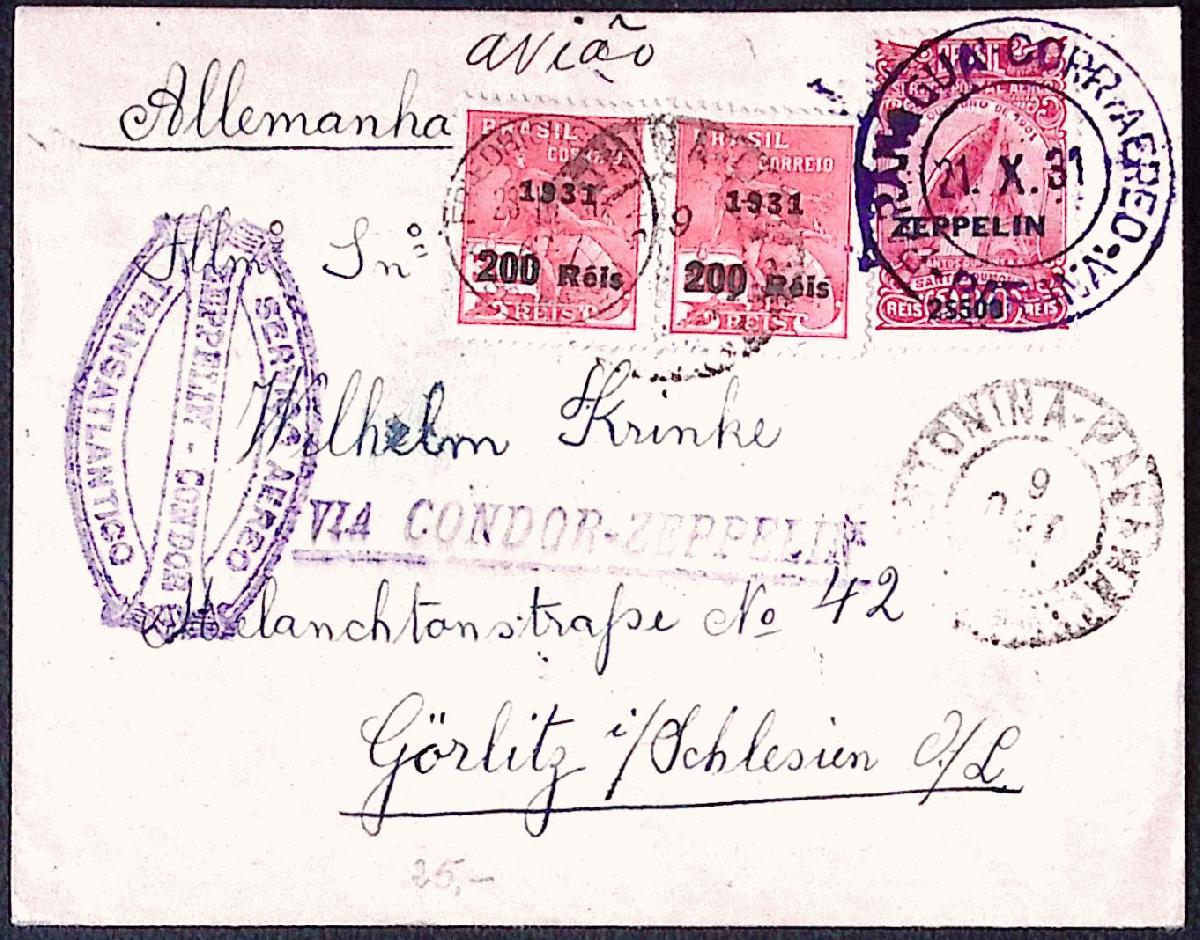 avião
Allemanha
BRASIL
CORREIO
1931
200 Réis
REIS
BRASIL
CORREIO
1931
200 Réis
REIS
BRASIL
21. X. 31
ZEPPELIN
REIS 2$500 REIS
CORR. AEREO
Illmº Snº
Wilhelm Krinke
SERVIÇO AEREO
ZEPPELIN - CONDOR
TRANSATLANTICO
VIA CONDOR-ZEPPELIN
ANTONINA-PARANA
9
Melanchtonstraße No 42
Görlitz i/Schlesien O/L.
25,-